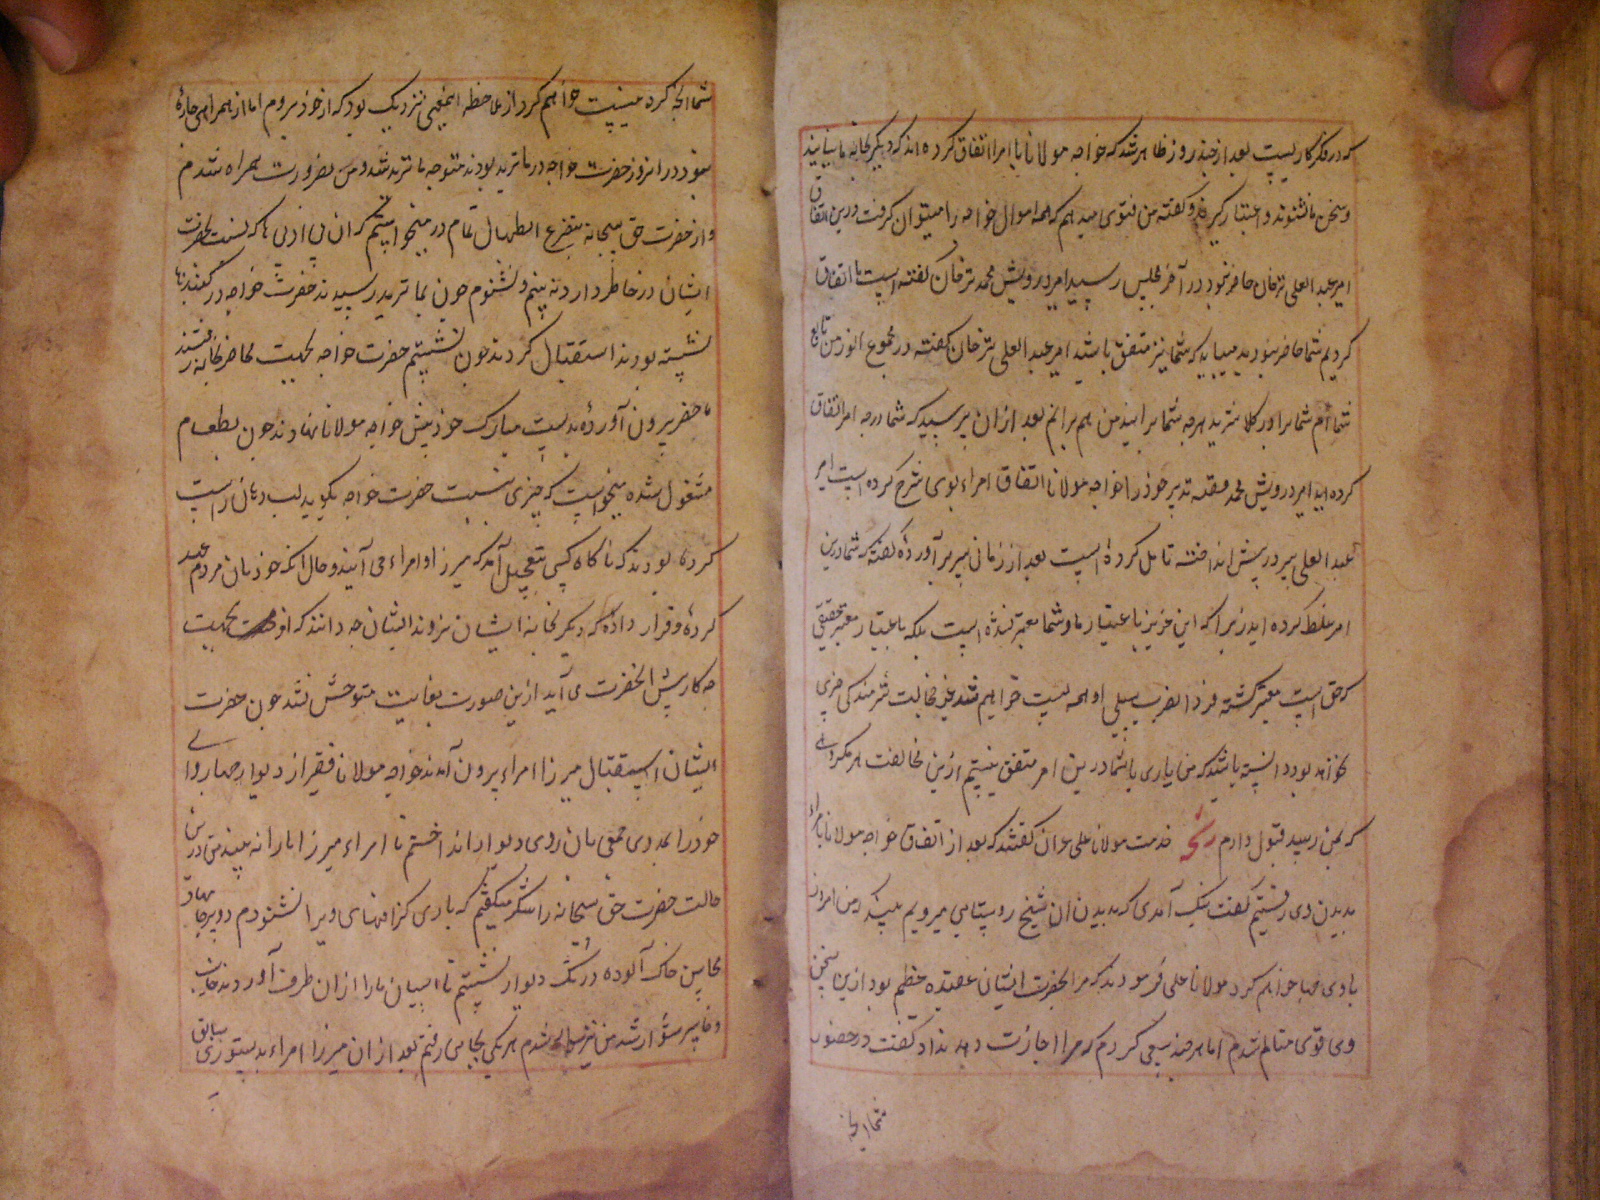 که در فکر کار نیست بعد از چند روز ظاهر شد که خواجه مولانا با امرا اتفاق کرده اند که دیگر بخانه ما نیایند
و سخن ما نشنوند و اعتبار نگیرند و گفته من فتوی میدهم که همه اموال خواجه را میتوان گرفت و درین اتفاق
امیر عبد العلی ترخان حاضر نبود در آخر مجلس رسید امیر درویش محمد ترخان گفته است ما اتفاق
کردیم شما حاضر نبودید میباید که شما نیز متفق باشید امیر عبد العلی ترخان گفته در مجموع امور من تابع
شما ام شما برادر کلانترید هرچه شما برانید من هم برانم بعد ازان پرسید که شما در چه امر اتفاق
کرده اید امیر درویش محمد قصه تدبیر خود را خواجه مولانا اتفاق امراء بوی شرح کرده است امیر
عبد العلی سر در پیش انداخته تامل کرده است بعد از زمانی سر بر آورده گفته که شما درین
امر غلط کرده اید زیرا که این عزیز باعتبار ما و شما معتبر نشده است بلکه باعتبار معتبر حقیقی
که حق است معتبر گشته فردا بضرب سیلی او همه پست خواهیم شد غیر خجالت شرمندگی چیزی
نخواهد بود دانسته باشید که من باری با شما درین امر متفق نیستم ازین مخالفت هر مکروهی
که بمن رسد قبول دارم رشحه خدمت مولانا علی عران گفتند که بعد از اتفاق خواجه مولانا با امراء
بدیدن وی رفتیم گفت نیک آمدی که بدیدن ان شیخ روستایی میرویم ببین که من امروز
با وی چها خواهم کرد مولانا علی فرمودند که مرا بحضرت ایشان عقیده عظیم بود ازین سخن
وی قوی متالم شدم اما هر چند سعی کردم که مرا اجازت دهد نداد گفت در حضور
شما انچه کرده میشود خواهم کرد از ملاحظه اینمعنی نزدیک بود که از خود بروم اما از همراهی چاره
نبود در انروز حضرت خواجه در ماترید بودند متوجه ماترید شد و من بضرورت همراه شدم
و از حضرت حق سبحانه بتضرع ابتهال تمام در میخواستم که ان بی ادبی ها که نسبت بحضرت
ایشان در خاطر دارد نه بینم و نشنوم چون بماترید رسیدند حضرت خواجه در
نشسته بودند استقبال کردند چون نشستیم حضرت خواجه بجهت ماحضر بخانه رفتند
ماحضر بیرون آورده بدست مبارک خود پیش خواجه مولانا نهادند چون بطعام
مشغول شده میخواست که چیزی نسبت حضرت خواجه بگوید لب و دهان راست
کرده بودند که ناگاه کسی بتعجیل آمد که میرزا و امراء می آیند و حال آنکه خود بان مردم عهد
کرده و قرار داده که دیگر بخانه ایشان نروند ایشان چه دانند که او بجهت
چه کار پیش انحضرت می آید ازین صورت بغایت متوحش شد چون حضرت
ایشان باستقبال میرزا امراء بیرون آمدند خواجه مولانا فقیر از دیوار چهار
خود را بمدوی جمعی بان روی دیوار انداختیم تا امراء میرزا ما را نه بینند من درین
حالت حضرت حق سبحانه را شکر میگفتم که باری کراهتهای ویرا نشنودم دو پیر
محاسن خاک آلوده در تنگ دیوار نشستیم تا اسپان ما را ازان طرف آوردند خاین
و خاسر سوار شد من نیز سوار شدم هر یکی بجای رفتم بعد ازان میرزا امراء بدستور سابق